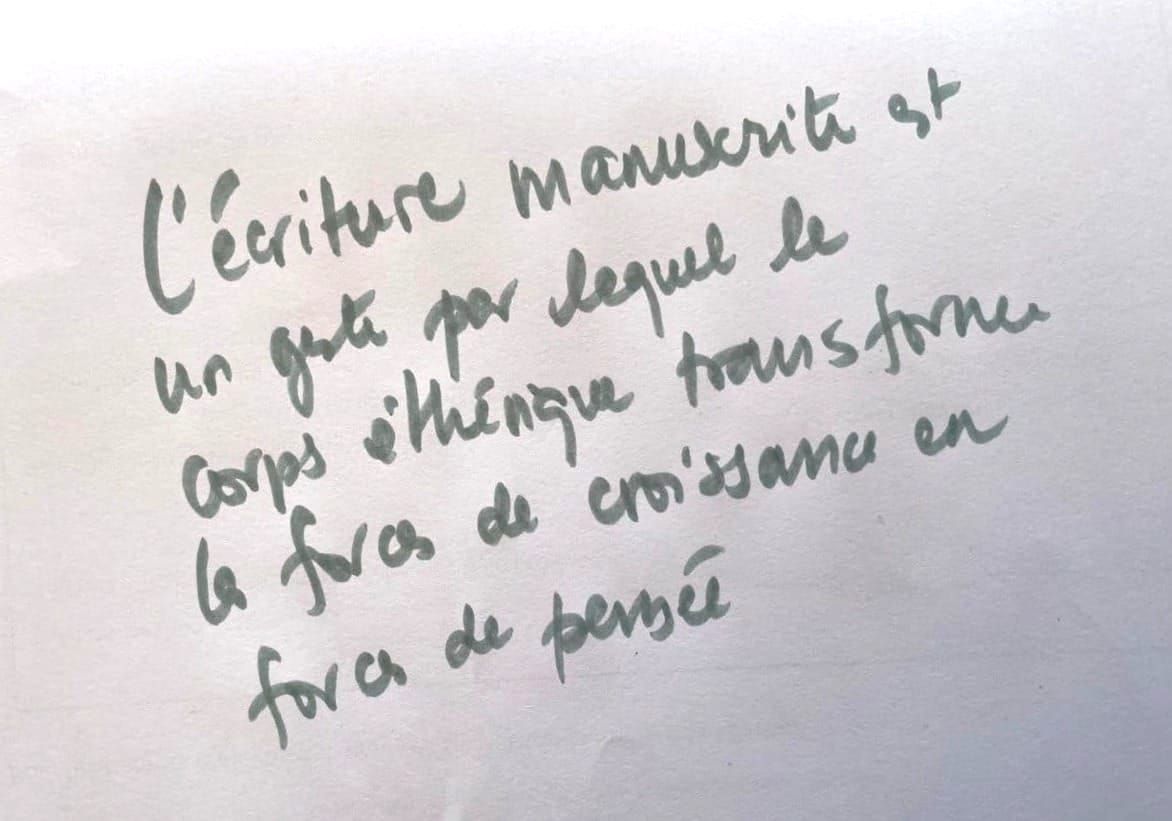 L'écriture manuscrite est
un geste par lequel le
corps éthérique transforme
les forces de croissance en
forces de pensée